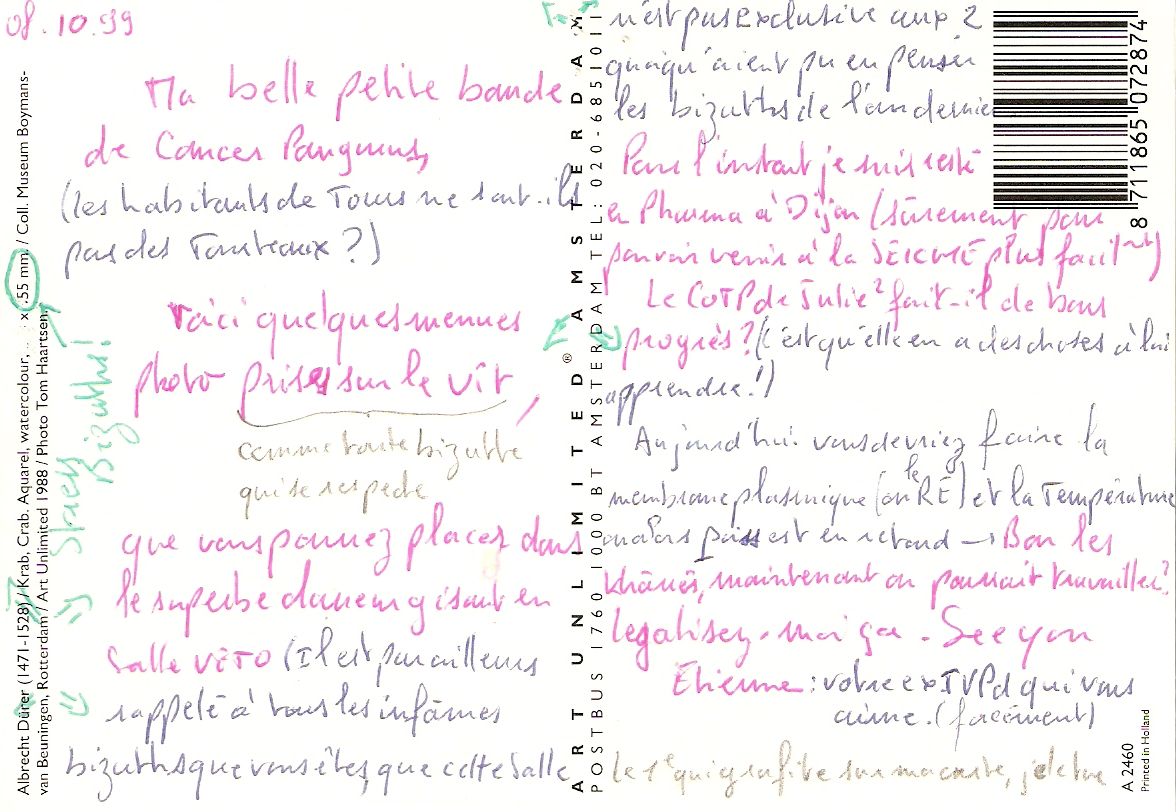 08.10.99
Ma belle petite bande
de Cancer Pangunus,
(les habitants de Tours ne sont-ils
pas des Tourteaux ?)
Voici quelques menues
photo prises sur le vît,
comme toute bizutte
qui se respecte
que vous pourrez placer dans
le superbe classeur gisant en
Salle VÉTO (Il est par ailleurs
rappelé à tous les infâmes
bizuths que vous êtes, que cette Salle
n'est pas exclusive aux 2
quoiqu'aient pu en penser
les bizuths de l'an dernier
Pour l'instant je suis resté
en Pharma à Dijon (sûrement pour
pouvoir venir à la plus facilt)
Le COTP de Julie² fait-il de bons
progrès ? (c'est qu'elle en a des choses à lui
apprendre !)
Aujourd'hui vous devriez faire la
membrane plasmique (ou le RE) et la Température
ou alors est en retard → Bon les
khâûés, maintenant on pourrait travailler ?
legalisez-moi ça. See you
Etienne : votre ex IVPd qui vous
aime. (forcément)
le 1e qui grafite sur ma carte, je le tue
Stress Bizuths !
Albrecht Dürer (1471-1528) / Krab, Crab. Aquarel, watercolour, x 55 mm / Coll. Museum Boymans-
van Beuningen, Rotterdam / Art Unlimited 1988 / Photo Tom Haartsen
ART UNLIMITED® AMSTERDAM
POSTBUS 1760 1000 BT AMSTERDAM TEL: 020-6851011
8 711865 072874
A 2460
Printed in Holland